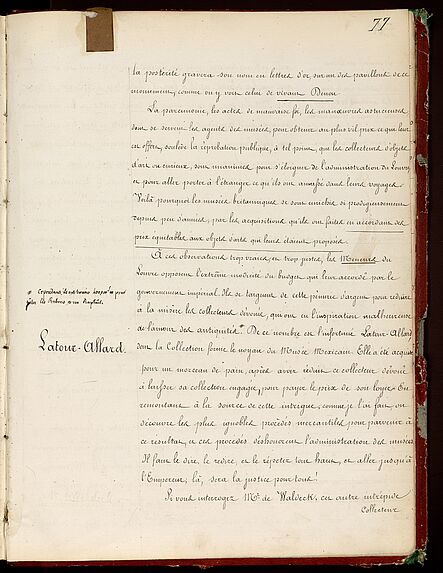 77
la postérité gravera son nom en lettres d'or, sur un des pavillons de ce
monument, comme on y voit celui de vivant Denon.
La parcimonie, les actes de mauvaise foi, les manœuvres astucieuses
dont se servent les agents des musées, pour obtenir au plus vil prix ce qui leur
est offert, soulève la réprobation publique, à tel point, que les collecteurs d'objets
d'art ou curieux, sont unanimes pour s'éloigner de l'administration du Louvre
et pour aller porter à l'étranger ce qu'ils ont amassé dans leurs voyages.
Voilà pourquoi les musées britanniques se sont enrichis si prodigieusement
depuis peu d'années, par les acquisitions qu'ils ont faites en accordant des
prix équitables aux objets d'arts qui leur étaient proposés.
A ces observations trop vraies, et trop justes, les Messieurs du
Louvre opposent l'extrême modicité du budget qui leur est accordé par le
gouvernement impérial. Ils se targuent de cette pénurie d'argent pour réduire
à la misère les collecteurs dévoués, qui ont eu l'inspiration malheureuse
de l'amour des antiquités. De ce nombre est l'infortuné Latour-Allard
Latour-Allard.
dont la Collection forme le noyau du Musée Mexicain. Elle a été acquise
pour un morceau de pain, après avoir réduit ce collecteur dévoué
à laisser sa collection engagée, pour payer le prix de son loyer. En
remontant à la source de cette intrigue, comme je l'ai fait, on
découvre les plus ignobles procédés mercantiles pour parvenir à
ce résultat, et ces procédés déshonorent l'administration des musées
Il faut le dire, le redire, et le répéter tout haut, et aller jusqu'à
l'Empereur; là, sera la justice pour tous!
Si vous interrogez Mr. de Waldeck, cet autre intrépide
collecteur